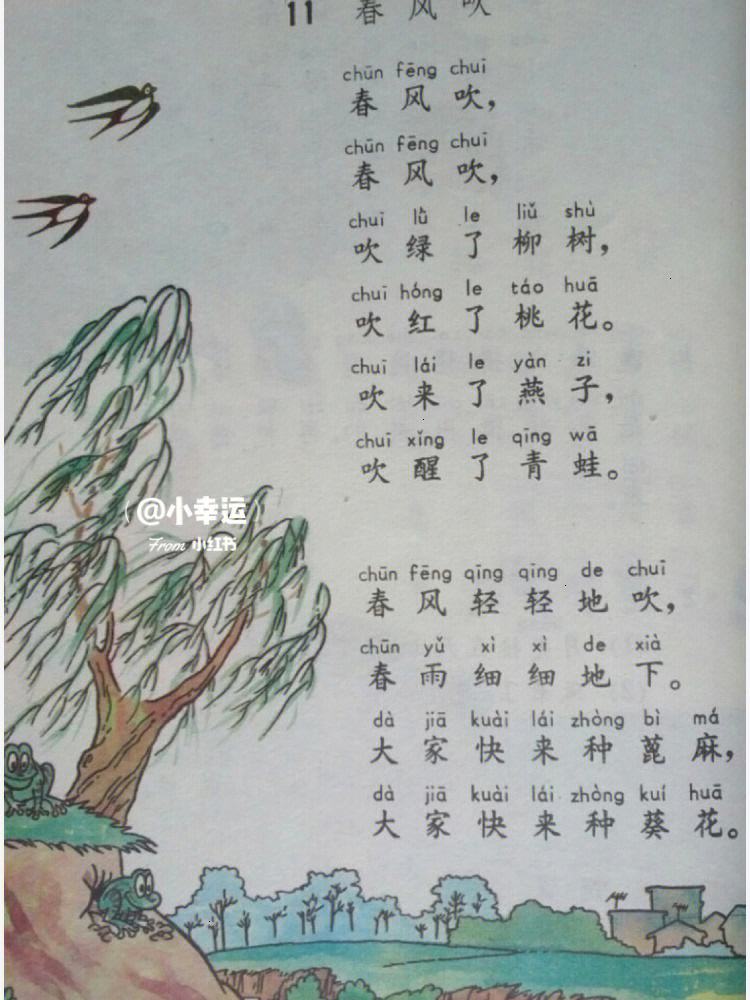 11 春 风 吹
chūn fēng chuī
春 风 吹，
chūn fēng chuī
春 风 吹，
chuī lǜ le liǔ shù
吹 绿 了 柳 树，
chuī hóng le táo huā
吹 红 了 桃 花。
chuī lái le yàn zi
吹 来 了 燕 子，
chuī xǐng le qīng wā
吹 醒 了 青 蛙。
(@小幸运)
From 小红书
chūn fēng qīng qīng de chuī
春 风 轻 轻 地 吹，
chūn yǔ xì xì de xià
春 雨 细 细 地 下。
dà jiā kuài lái zhòng bì má
大 家 快 来 种 蓖 麻，
dà jiā kuài lái zhòng kuí huā
大 家 快 来 种 葵 花。